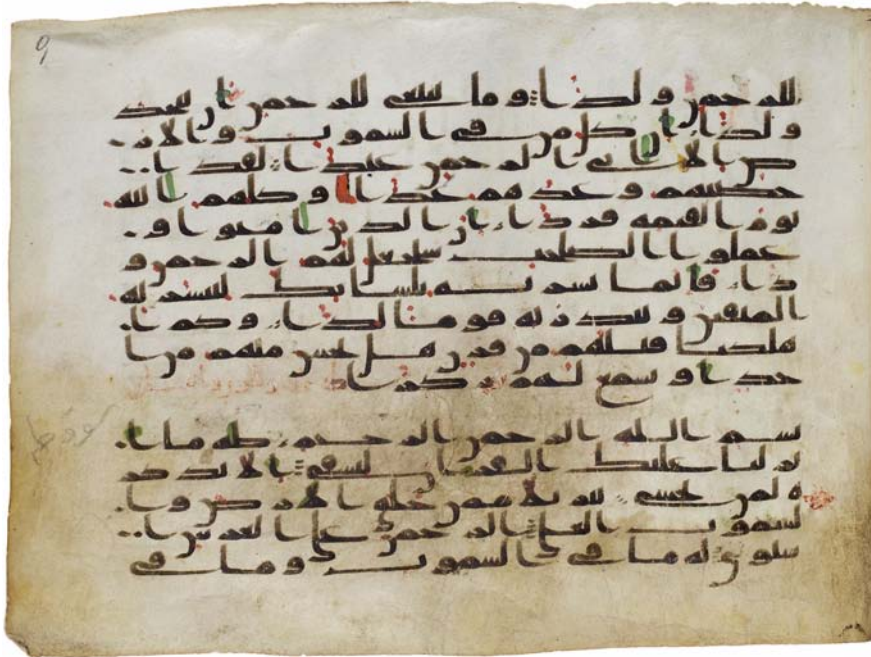 للرحمن ولدا وما ينبغي للرحمن ان يتخذ
ولدا ان كل من في السموت والار
ض الا اتي الرحمن عبدا لقد ا
حصيهم وعدهم عدا وكلهم اتيه
يوم القيمه فردا ان الذين امنوا و
عملوا الصلحت سيجعل لهم الرحمن و
دا فانما يسرنه بلسانك لتبشر به
المتقين وتنذر به قوما لدا وكم ا
هلكنا قبلهم من قرن هل تحس منهم من ا
حد او تسمع لهم ركزا
بسم الله الرحمن الرحيم طه ما ا
نزلنا عليك القران لتشقى الا تذكر
ه لمن يخشى تنزيلا ممن خلق الارض وا
لسموت العلى الرحمن على العرش ا
ستوى له ما في السموت وما في